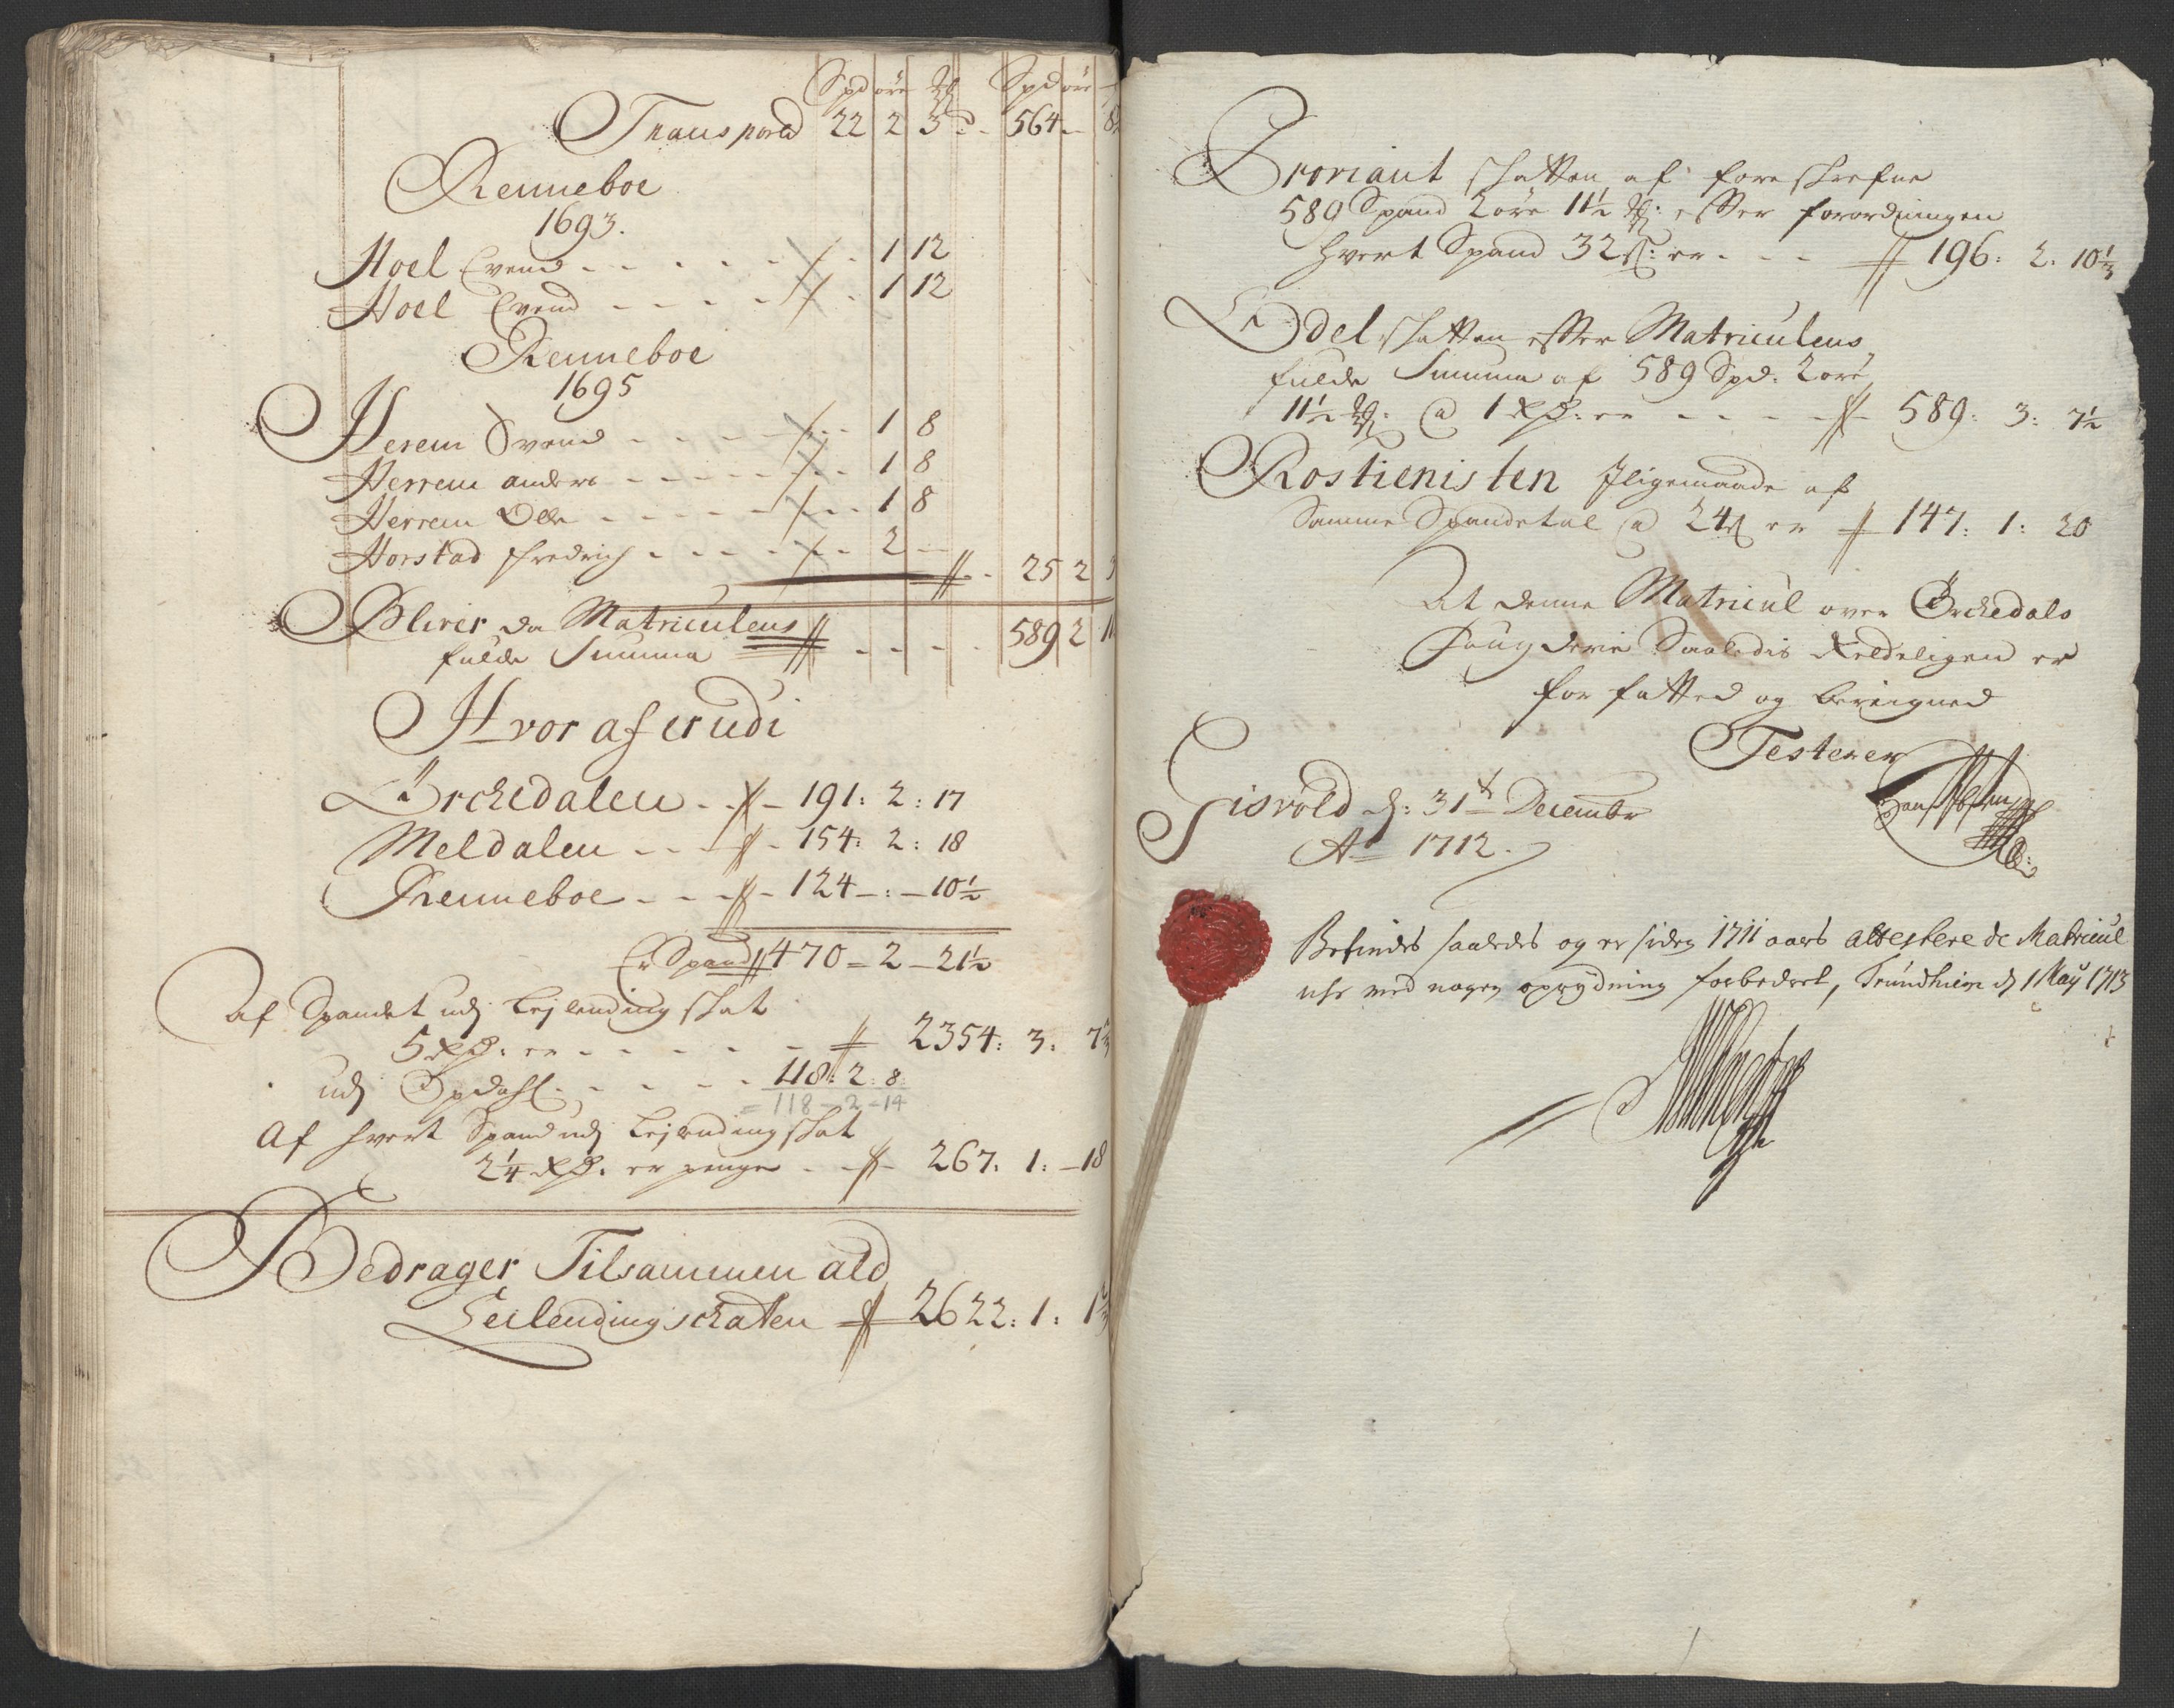 Spd øre Spd øre
Transpord 22 2 3 564
Renneboe
1693.
Hoel Evend 1 12
Hoel Evend 1 12
Renneboe
1695
Herem Svend 1 8
Herrem anders 1 8
Herrem Olle 1 8
Horstad fredrich 2 25 2
Bliver da Matriculens
fulde Summa 589 2 11
Hvor af er udi
Ørchedalen 191: 2: 17
Meldalen 154: 2: 18
Renneboe 124 – : – 10½
Er Spand 470 – 2 – 21½
Af Spandet udj Lejlending skat
5 Rd: er 2354: 3: 7
udj Opdahl 118: 2: 8
= 118 – 2 – 14
Af hvert Spand udj Lejlending skat
2¼ Rd: er penge 267: 1: – 18
Bedrager Tilsammen ald
Leilending schatten 2622: 1: 1
Proviant skatten af foreskrefne
589 Spand 2 øre 11½ efter forordningen
hvert Spand 32 s: er 196: 2: 10⅓
Odel skatten efter Matriculens
fulde Summa af 589 Spd: 2 øre
11½ @ 1 Rd: er 589: 3: 7½
Rostienisten Jligemaade af
Samme Spandetal @ 24 s er 147: 1: 20
At denne Matricul over Ørchedals
fougderie Saaledis Redeligen er
forfatted og bereigned
Testerer
Gisvold d: 31t Decembr
Ao 1712.
Befindes saaledes og er siden 1711 aars attesterede Matricul
icke med nogen oprydning forbedret, Trundhiem d 1 May 1713